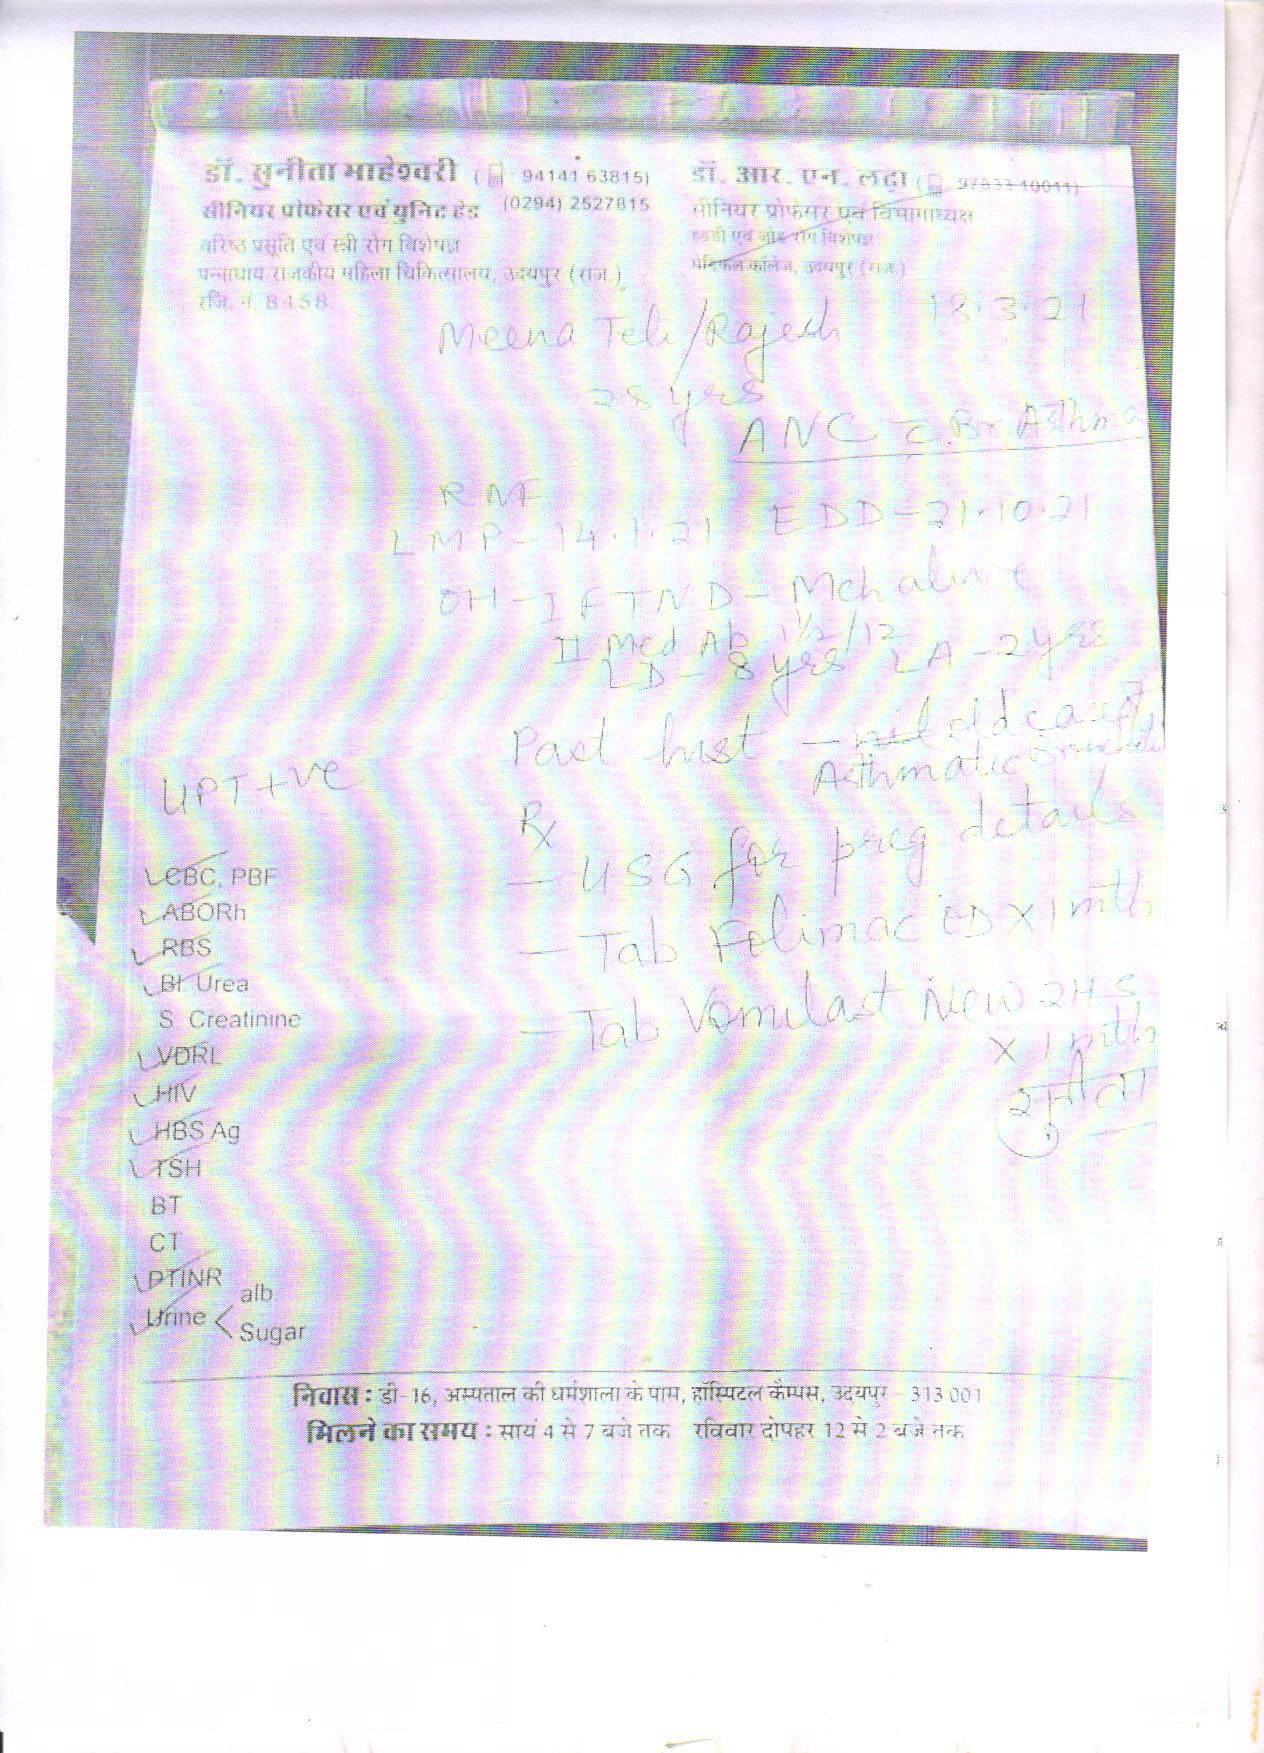 डॉ. सुनीता माहेश्वरी ( : 94141 63815)
सीनियर प्रोफेसर एवं युनिट हेड (0294) 2527815
वरिष्ठ प्रसूति एवं स्त्री रोग विशेषज्ञ
पन्नाधाय राजकीय महिला चिकित्सालय, उदयपुर (राज.)
रजि. नं. 8458
डॉ. आर. एन. लढ़ा ( 97833 10011)
सीनियर प्रोफेसर एवं विभागाध्यक्ष
हड्डी एवं जोड़ रोग विशेषज्ञ
मेडिकल कॉलेज, उदयपुर (राज.)
18.3.21
Meena Teli/Rajesh
28 yrs
ANC c Br. Asthma
RMF
LMP - 14.1.21 EDD - 21.10.21
OH - I FTND - Mch alive
II Med Ab 1½/12
LD - 8 yrs LA - 2 yrs
Past hist - nil old case of
Asthmatic
UPT +ve
Rx
- USG for preg details
- Tab Folimac OD X 1 mth
- Tab Vomilast New 2HS
X 1 mth
सुनीता
CBC, PBF
ABORh
RBS
Bl. Urea
S. Creatinine
VDRL
HIV
HBS Ag
TSH
BT
CT
PTINR
Urine < alb
Sugar
निवास : डी-16, अस्पताल की धर्मशाला के पास, हॉस्पिटल कैम्पस, उदयपुर - 313 001
मिलने का समय : सायं 4 से 7 बजे तक रविवार दोपहर 12 से 2 बजे तक